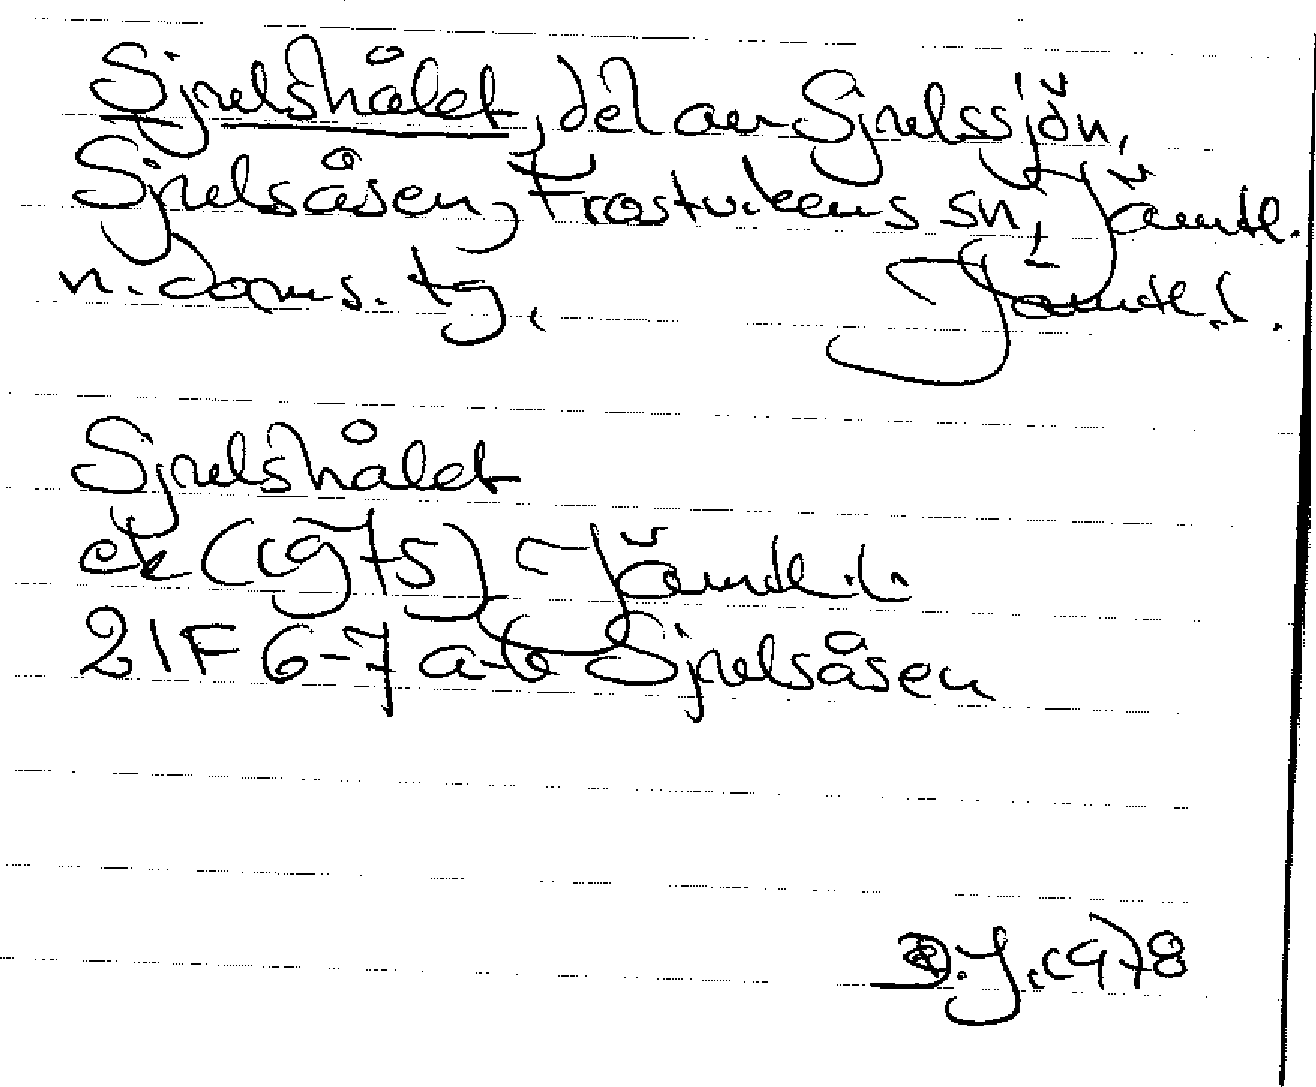 Sjulshålet, del av Sjulssjön,
Sjulsåsen, Frostvikens sn, Jämtl.
n. doms. tg, Jämtl. l.
Sjulshålet
ek (1975) Jämtl. l.
21F 6-7 a-b Sjulsåsen
J. 1978